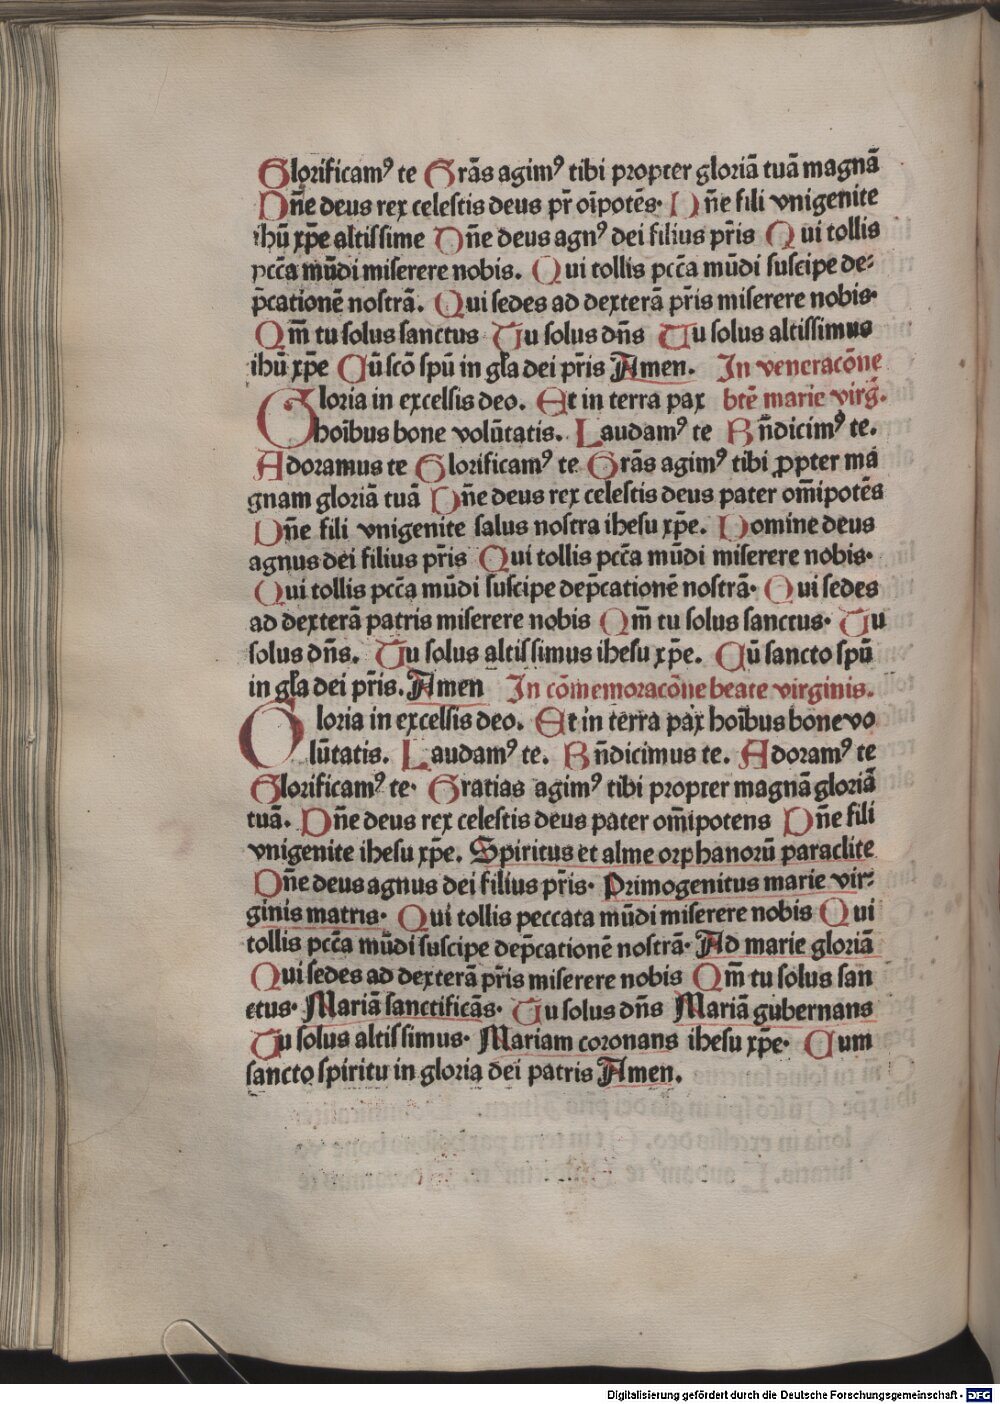 Glorificamꝰ te Grās agimꝰ tibi propter gloriā tuā magnā
Dn̄e deus rex celestis deus pr̄ oīpotēs· Dn̄e fili vnigenite
ihū xp̄e altissime Dn̄e deus agnꝰ dei filius pr̄is Qui tollis
pcc̄a mūdi miserere nobis. Qui tollis pcc̄a mūdi suscipe de⸗
p̄cationē nostrā. Qui sedes ad dexterā pr̄is miserere nobis·
Qm̄ tu solus sanctus Tu solus dn̄s Tu solus altissimus
ihū xp̄e Cū scō spū in gl̄a dei pr̄is Amen. In veneracōne
Gloria in excelsis deo. Et in terra pax btē marie virḡ.
hoībus bone volūtatis. Laudamꝰ te Bn̄dicimꝰ te.
Adoramus te Glorificamꝰ te Grās agimꝰ tibi ꝓpter ma
gnam gloriā tuā Dn̄e deus rex celestis deus pater om̄ipotēs
Dn̄e fili vnigenite salus nostra ihesu xp̄e. Domine deus
agnus dei filius pr̄is Qui tollis pcc̄a mūdi miserere nobis·
Qui tollis pcc̄a mūdi suscipe dep̄cationē nostrā· Qui sedes
ad dexterā patris miserere nobis Qm̄ tu solus sanctus· Tu
solus dn̄s. Tu solus altissimus ihesu xp̄e. Cū sancto spū
in gl̄a dei pr̄is. Amen In cōmemoracōne beate virginis.
Gloria in excelsis deo. Et in terra pax hoībus bone vo
lūtatis. Laudamꝰ te. Bn̄dicimus te. Adoramꝰ te
Glorificamꝰ te· Gratias agimꝰ tibi propter magnā gloriā
tuā. Dn̄e deus rex celestis deus pater om̄ipotens Dn̄e fili
vnigenite ihesu xp̄e. Spiritus et alme orphanorū paraclite
Dn̄e deus agnus dei filius pr̄is· Primogenitus marie vir⸗
ginis matris· Qui tollis peccata mūdi miserere nobis Qui
tollis pcc̄a mūdi suscipe dep̄cationē nostrā· Ad marie gloriā
Qui sedes ad dexterā pr̄is miserere nobis Qm̄ tu solus san
ctus· Mariā sanctificās· Tu solus dn̄s Mariā gubernans
Tu solus altissimus· Mariam coronans ihesu xp̄e· Cum
sancto spiritu in gloria dei patris Amen.
Digitalisierung gefördert durch die Deutsche Forschungsgemeinschaft - DFG